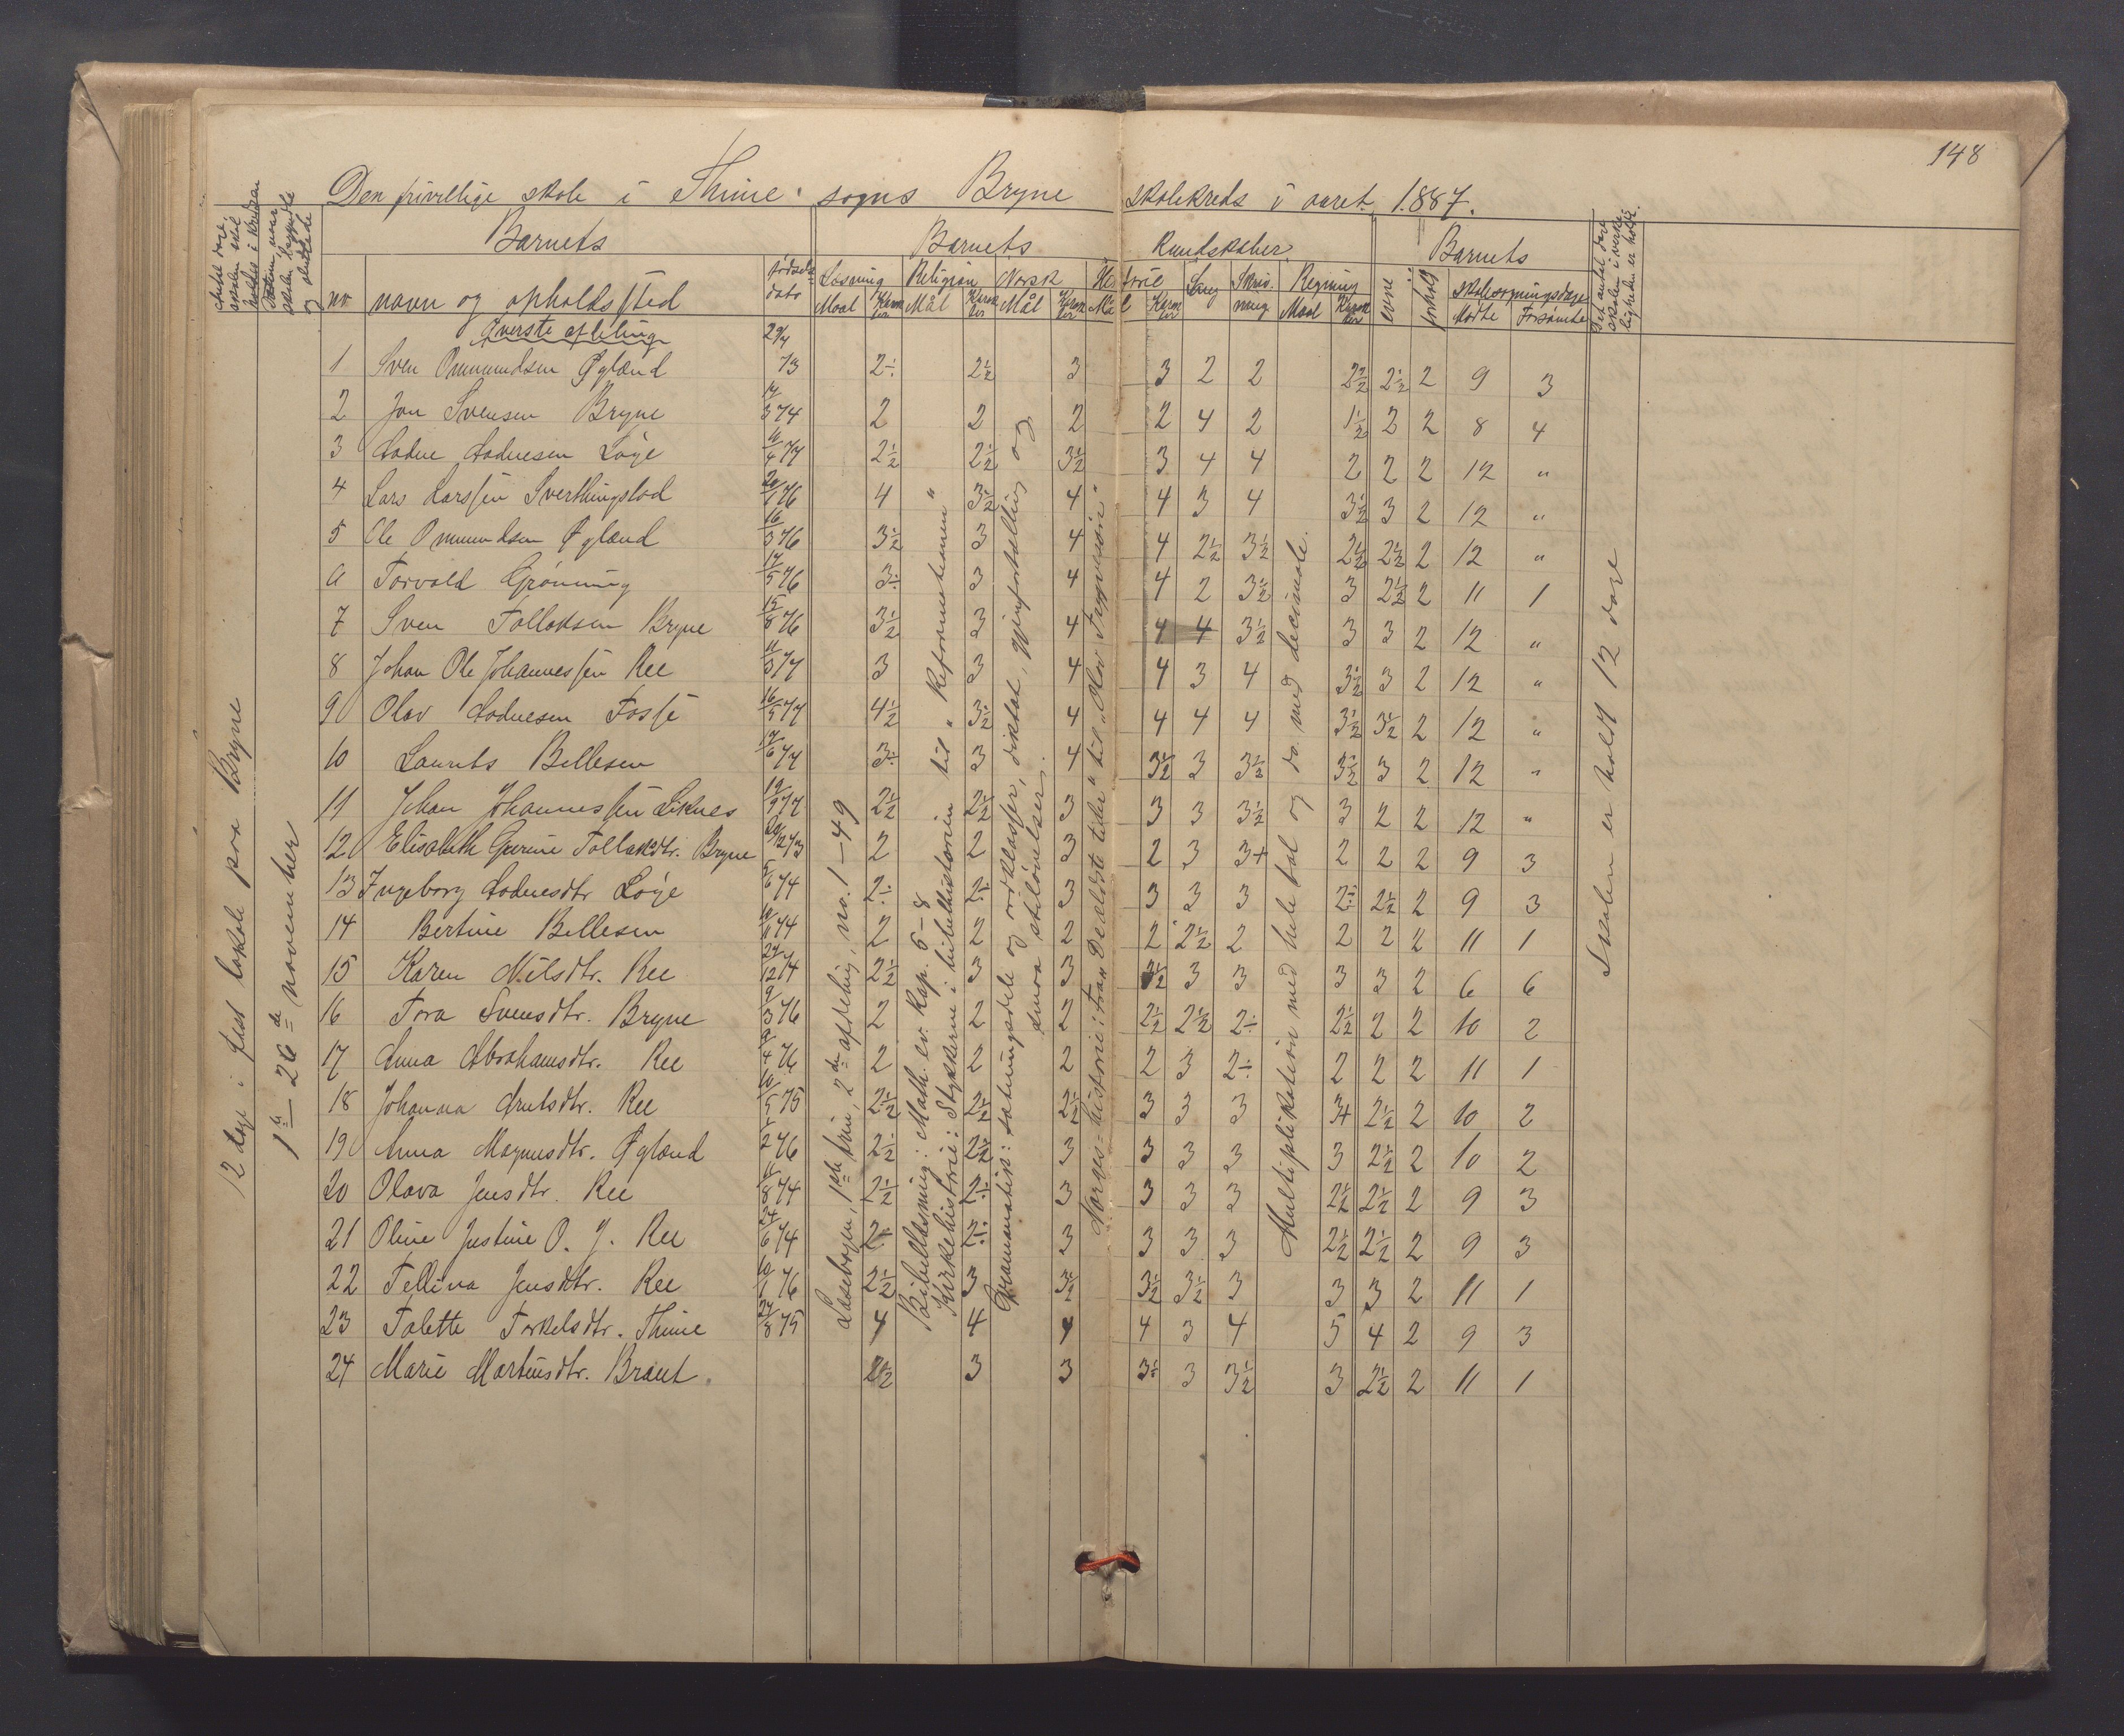 148
Den frivillige skole i Thime sogns Bryne skolekreds i aaret 1887.
Barnets Barnets Kundskaber Barnets
no navn og opholdssted fødselsdato Læsning Religion Norsk Historie Sang Skrivning Regning evne forhold skolesøgningsdage
Maal Karakter Mål Karakter Mål Karakter Mål Karakter Maal Karakter Mødte Forsømte
Øverste afdeling
1 Sven Ommundsen Øgland 29/4 73 2÷ 2½ 3 3 2 2 2½ 2½ 2 9 3
2 Jon Svensen Bryne 74 2 2 2 2 4 2 1½ 2 2 8 4
3 Aadne Aadnesen Løge 77 2½ 2½ 3½ 3 4 4 2 2 2 12 "
4 Lars Larssen Sverthingstad 76 4 3½ 4 4 3 4 3½ 3 2 12 "
5 Ole Ommundsen Øgland 16/3 76 3½ 3 4 4 2½ 3½ 2½ 2½ 2 12 "
6 Torvald Grønning 17/5 76 3÷ 3 4 4 2 3½ 3 2½ 2 11 1
7 Sven Tollaksen Bryne 15/8 76 3½ 3 4 4 4 3½ 3 3 2 12 "
8 Johan Ole Johannessen Ree 11/3 77 3 3 4 4 3 4 3½ 3 2 12 "
9 Olav Aadnesen Fosse 16/5 77 4½ 3½ 4 4 4 4 3½ 3½ 2 12 "
10 Laurits Bellesen 77 3÷ 3 4 3½ 3 3½ 3½ 3 2 12 "
11 Johan Johannessen Liknes 77 2½ 2½ 3 3 3 3½ 3 2 2 12 "
12 Elisabeth Gurine Tollaksdtr. Bryne 73 2 2 3 2 3 3+ 2 2 2 9 3
13 Ingeborg Aadnesdtr Løge 5/6 74 2÷ 2÷ 3 3 3 3 2÷ 2½ 2 9 3
14 Bertine Bellesen 10/11 74 2 2 2 2 2½ 2 2 2 2 11 1
15 Karen Nilsdtr. Ree 24/12 74 2½ 3 3 3 3 3 3 2 6 6
16 Tora Svensdtr. Bryne 9/3 76 2 2 2 2½ 2½ 2÷ 2½ 2 2 10 2
17 Anna Abrahamsdtr. Ree 76 2 2 2 2 3 2÷ 2 2 2 11 1
18 Johanna Arntsdtr. Ree 10/5 75 2½ 2½ 2½ 3 3 3 3+ 2½ 2 10 2
19 Anna Magnusdtr. Øgland 76 2½ 2½ 3 3 3 3 3 2½ 2 10 2
20 Olava Jensdtr. Ree 11/8 74 2½ 2÷ 3 3 3 3 2½ 2½ 2 9 3
21 Oline Justine O. J. Ree 24/6 74 2÷ 2÷ 3 3 3 3 2½ 2½ 2 9 3
22 Tellina Jensdtr. Ree 10/1 76 2½ 3 3½ 3½ 3½ 3 3 3 2 11 1
23 Talette Torkelsdtr. Thime 27/8 75 4 4 4 4 3 4 5 4 2 9 3
24 Marie Martinsdtr. Braut. 2½ 3 3 3÷ 3 3½ 3 2½ 2 11 1
12 dage i fast lokale paa Bryne
1ste – 26de november
Læsebogen, 1ste trin, 2den afdeling, no. 1–49
Bibellæsning: Math. ev. Kap. 5–8
Kirkehistorie: Stykkerne i bibelhistorien til "Reformationen"
Grammatik: sætningsdele og ordklasser, diktat, gjenfortælling og
smaa stiløvelser.
Norges-historie: Fra "De ældste tider" til "Olav Trygvessøn"
Multiplikation med hele tal og do. med decimale.
Skolen er holdt 12 dage